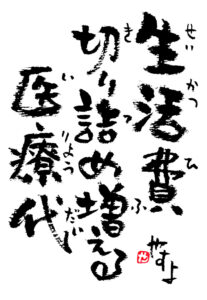 生活費
せいかつひ
切り詰め増える
きつふ
医療代
いりょうだい
やすよ
や